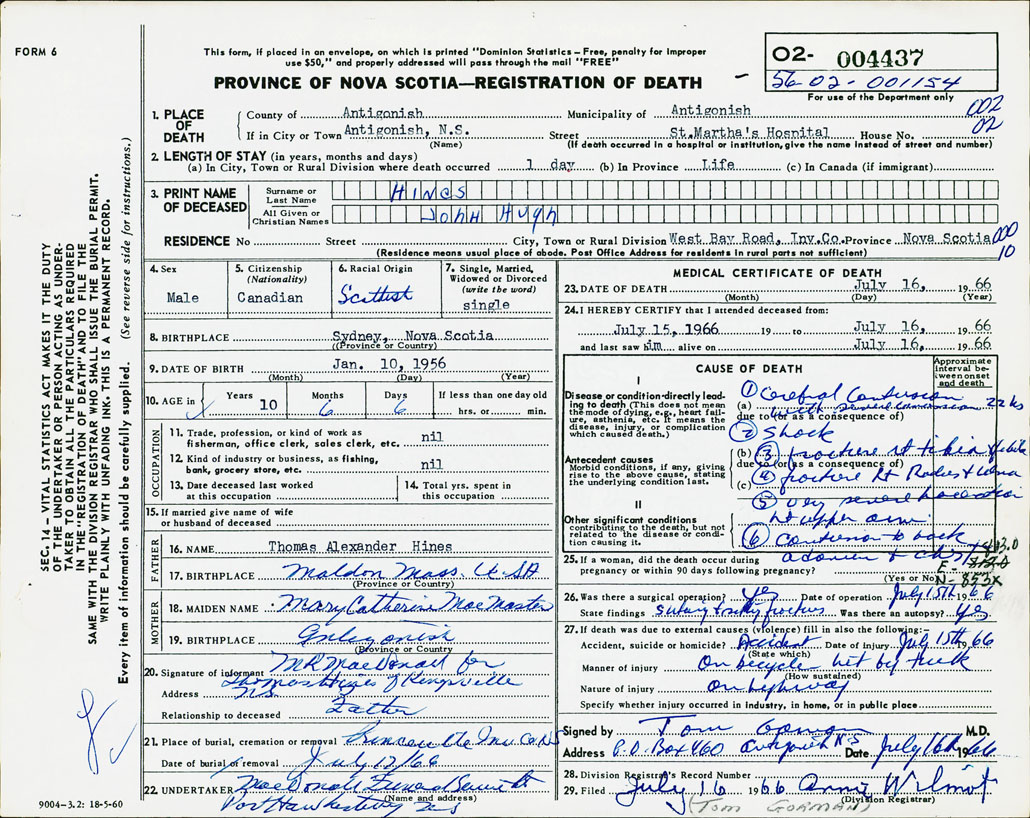 FORM 6
This form, if placed in an envelope, on which is printed "Dominion Statistics – Free, penalty for improper
use $50," and properly addressed will pass through the mail "FREE"
PROVINCE OF NOVA SCOTIA—REGISTRATION OF DEATH
02- 004437
56-02-001154
For use of the Department only
1. PLACE OF DEATH
County of Antigonish Municipality of Antigonish 002
If in City or Town Antigonish, N.S. Street St.Martha's Hospital House No. 02
(Name) (If death occurred in a hospital or institution, give the name instead of street and number)
2. LENGTH OF STAY (in years, months and days)
(a) In City, Town or Rural Division where death occurred 1 day (b) In Province Life (c) In Canada (if immigrant)
3. PRINT NAME OF DECEASED
Surname or Last Name HINES
All Given or Christian Names JOHN HUGH
RESIDENCE No Street City, Town or Rural Division West Bay Road, Inv.Co. Province Nova Scotia 000
(Residence means usual place of abode. Post Office Address for residents in rural parts not sufficient) 10
4. Sex Male
5. Citizenship (Nationality) Canadian
6. Racial Origin Scottish
7. Single, Married, Widowed or Divorced (write the word) single
8. BIRTHPLACE Sydney, Nova Scotia
(Province or Country)
9. DATE OF BIRTH Jan. 10, 1956
(Month) (Day) (Year)
10. AGE in Years 10 Months 6 Days 6 If less than one day old hrs. or min.
OCCUPATION
11. Trade, profession, or kind of work as
fisherman, office clerk, sales clerk, etc. nil
12. Kind of industry or business, as fishing,
bank, grocery store, etc. nil
13. Date deceased last worked
at this occupation
14. Total yrs. spent in
this occupation
15. If married give name of wife
or husband of deceased
FATHER
16. NAME Thomas Alexander Hines
17. BIRTHPLACE Maldon Mass. U.S.A
(Province or Country)
MOTHER
18. MAIDEN NAME Mary Catherine MacMaster
19. BIRTHPLACE
(Province or Country)
20. Signature of informant MR MacDonald for
Thomas Hines of Kingsville
Address NS
Relationship to deceased Father
21. Place of burial, cremation or removal Princeville Inv. Co NS
Date of burial or removal July 17/66
22. UNDERTAKER MacDonald Funeral Service
(Name and address)
Port Hawkesbury N S
9004–3.2: 18-5-60
MEDICAL CERTIFICATE OF DEATH
23. DATE OF DEATH July 16, 1966
(Month) (Day) (Year)
24. I HEREBY CERTIFY that I attended deceased from:
July 15, 1966 19 to July 16, 1966
and last saw him alive on July 16, 1966
CAUSE OF DEATH
Approximate interval between onset and death
I
Disease or condition directly leading to death (This does not mean the mode of dying, e.g., heart failure, asthenia, etc. It means the disease, injury, or complication which caused death.)
① Cerebral Contusion
(a) with severe concussion 22 hrs
due to (or as a consequence of)
② Shock
Antecedent causes
Morbid conditions, if any, giving rise to the above cause, stating the underlying condition last.
(b) ③ fracture rt tibia & fibula
due to (or as a consequence of)
(c) ④ fracture Rt Radius & ulna
⑤ very severe laceration
II
Other significant conditions
contributing to the death, but not related to the disease or condition causing it.
Rt upper arm
⑥ contusion to back
25. If a woman, did the death occur during
pregnancy or within 90 days following pregnancy?
(Yes or No)
N-853X
26. Was there a surgical operation? yes Date of operation July 15th 1966
State findings Was there an autopsy? yes
27. If death was due to external causes (violence) fill in also the following:
Accident, suicide or homicide? Accident Date of injury July 15th 1966
(State which)
Manner of injury On bicycle hit by truck
(How sustained)
Nature of injury On highway
Specify whether injury occurred in industry, in home, or in public place
Signed by Tom Gorman M.D.
Address P.O. Box 460 Antigonish N.S Date July 16th 1966
28. Division Registrar's Record Number
29. Filed July 16 1966 Annie Wilmot
(Division Registrar)
(TOM GORMAN)
SEC. 14 – VITAL STATISTICS ACT MAKES IT THE DUTY
OF THE UNDERTAKER OR PERSON ACTING AS UNDER-
TAKER TO OBTAIN ALL THE PARTICULARS REQUIRED
IN THE "REGISTRATION OF DEATH" AND TO FILE THE
SAME WITH THE DIVISION REGISTRAR WHO SHALL ISSUE THE BURIAL PERMIT.
WRITE PLAINLY WITH UNFADING INK. THIS IS A PERMANENT RECORD.
Every item of information should be carefully supplied. (See reverse side for instructions.)